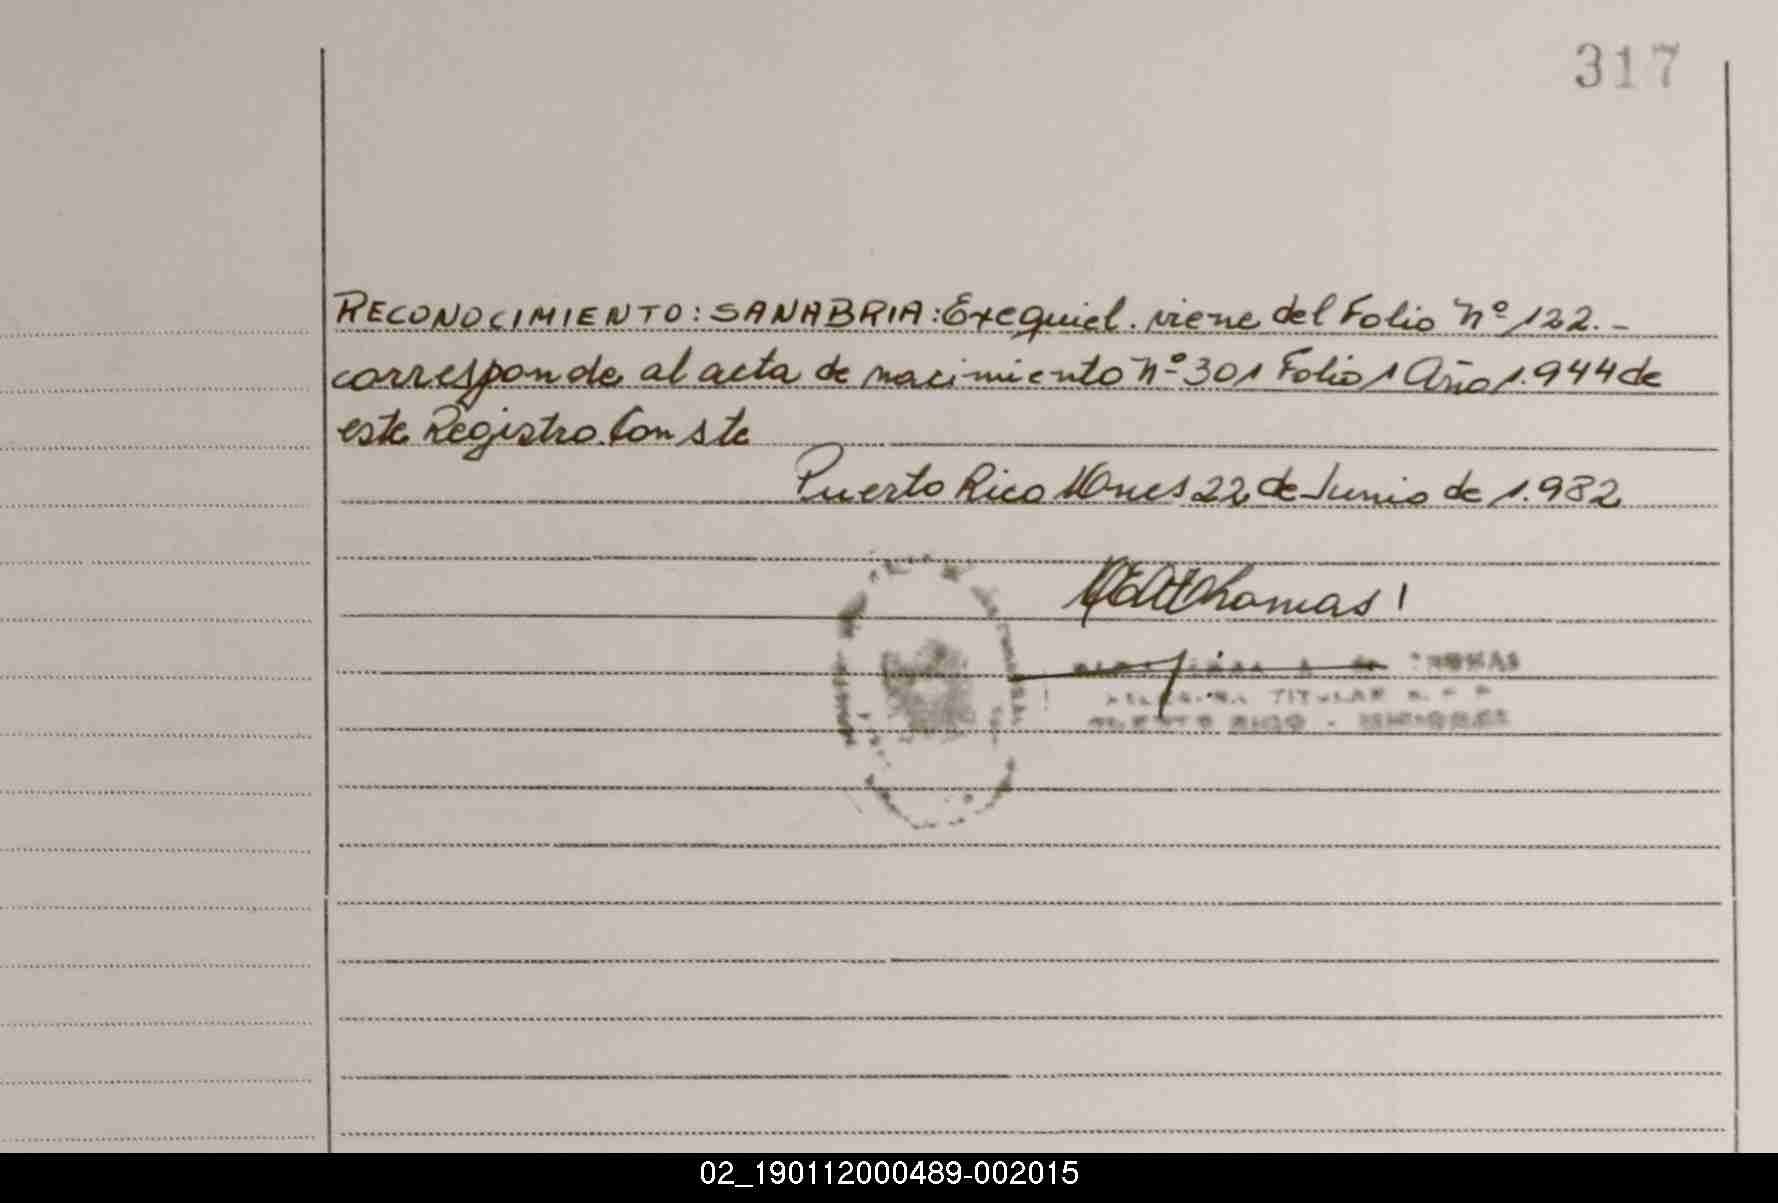 317
RECONOCIMIENTO: SANABRIA: Exequiel. viene del Folio Nº 122.-
corresponde al acta de nacimiento Nº 301 Folio 1 Año 1.944 de
este Registro. Conste
Puerto Rico Mnes 22 de Junio de 1.982
Thomas
THOMAS
TITULAR
PUERTO RICO - MISIONES
02_190112000489-002015